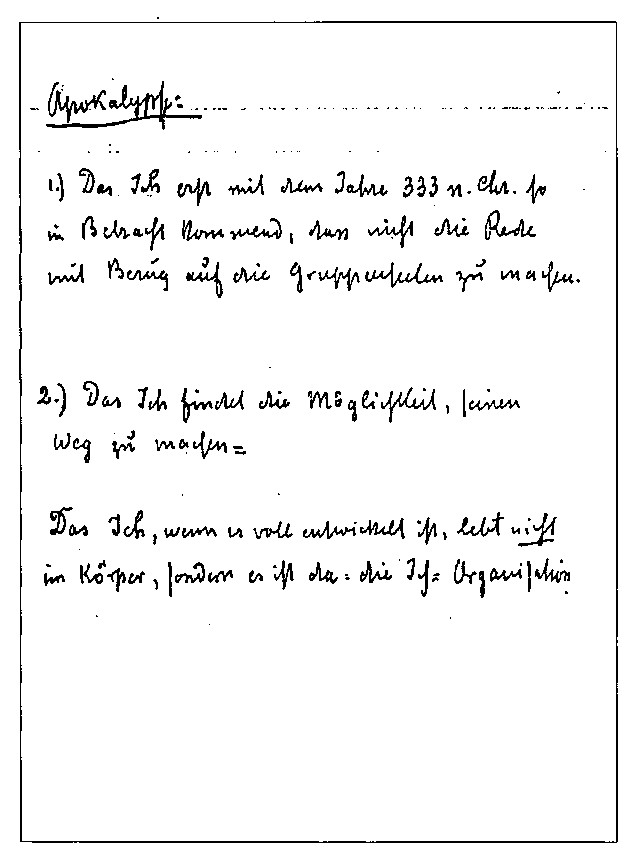 Apokalypse:
1.) Das Ich erst mit dem Jahre 333 n. Chr. so
in Betracht kommend, dass nicht die Rede
mit Bezug auf die Gruppenseelen zu machen.
2.) Das Ich findet die Möglichkeit, seinen
Weg zu machen =
Das Ich, wenn es voll entwickelt ist, lebt nicht
im Körper, sondern es ist da: die Ich= Organisation